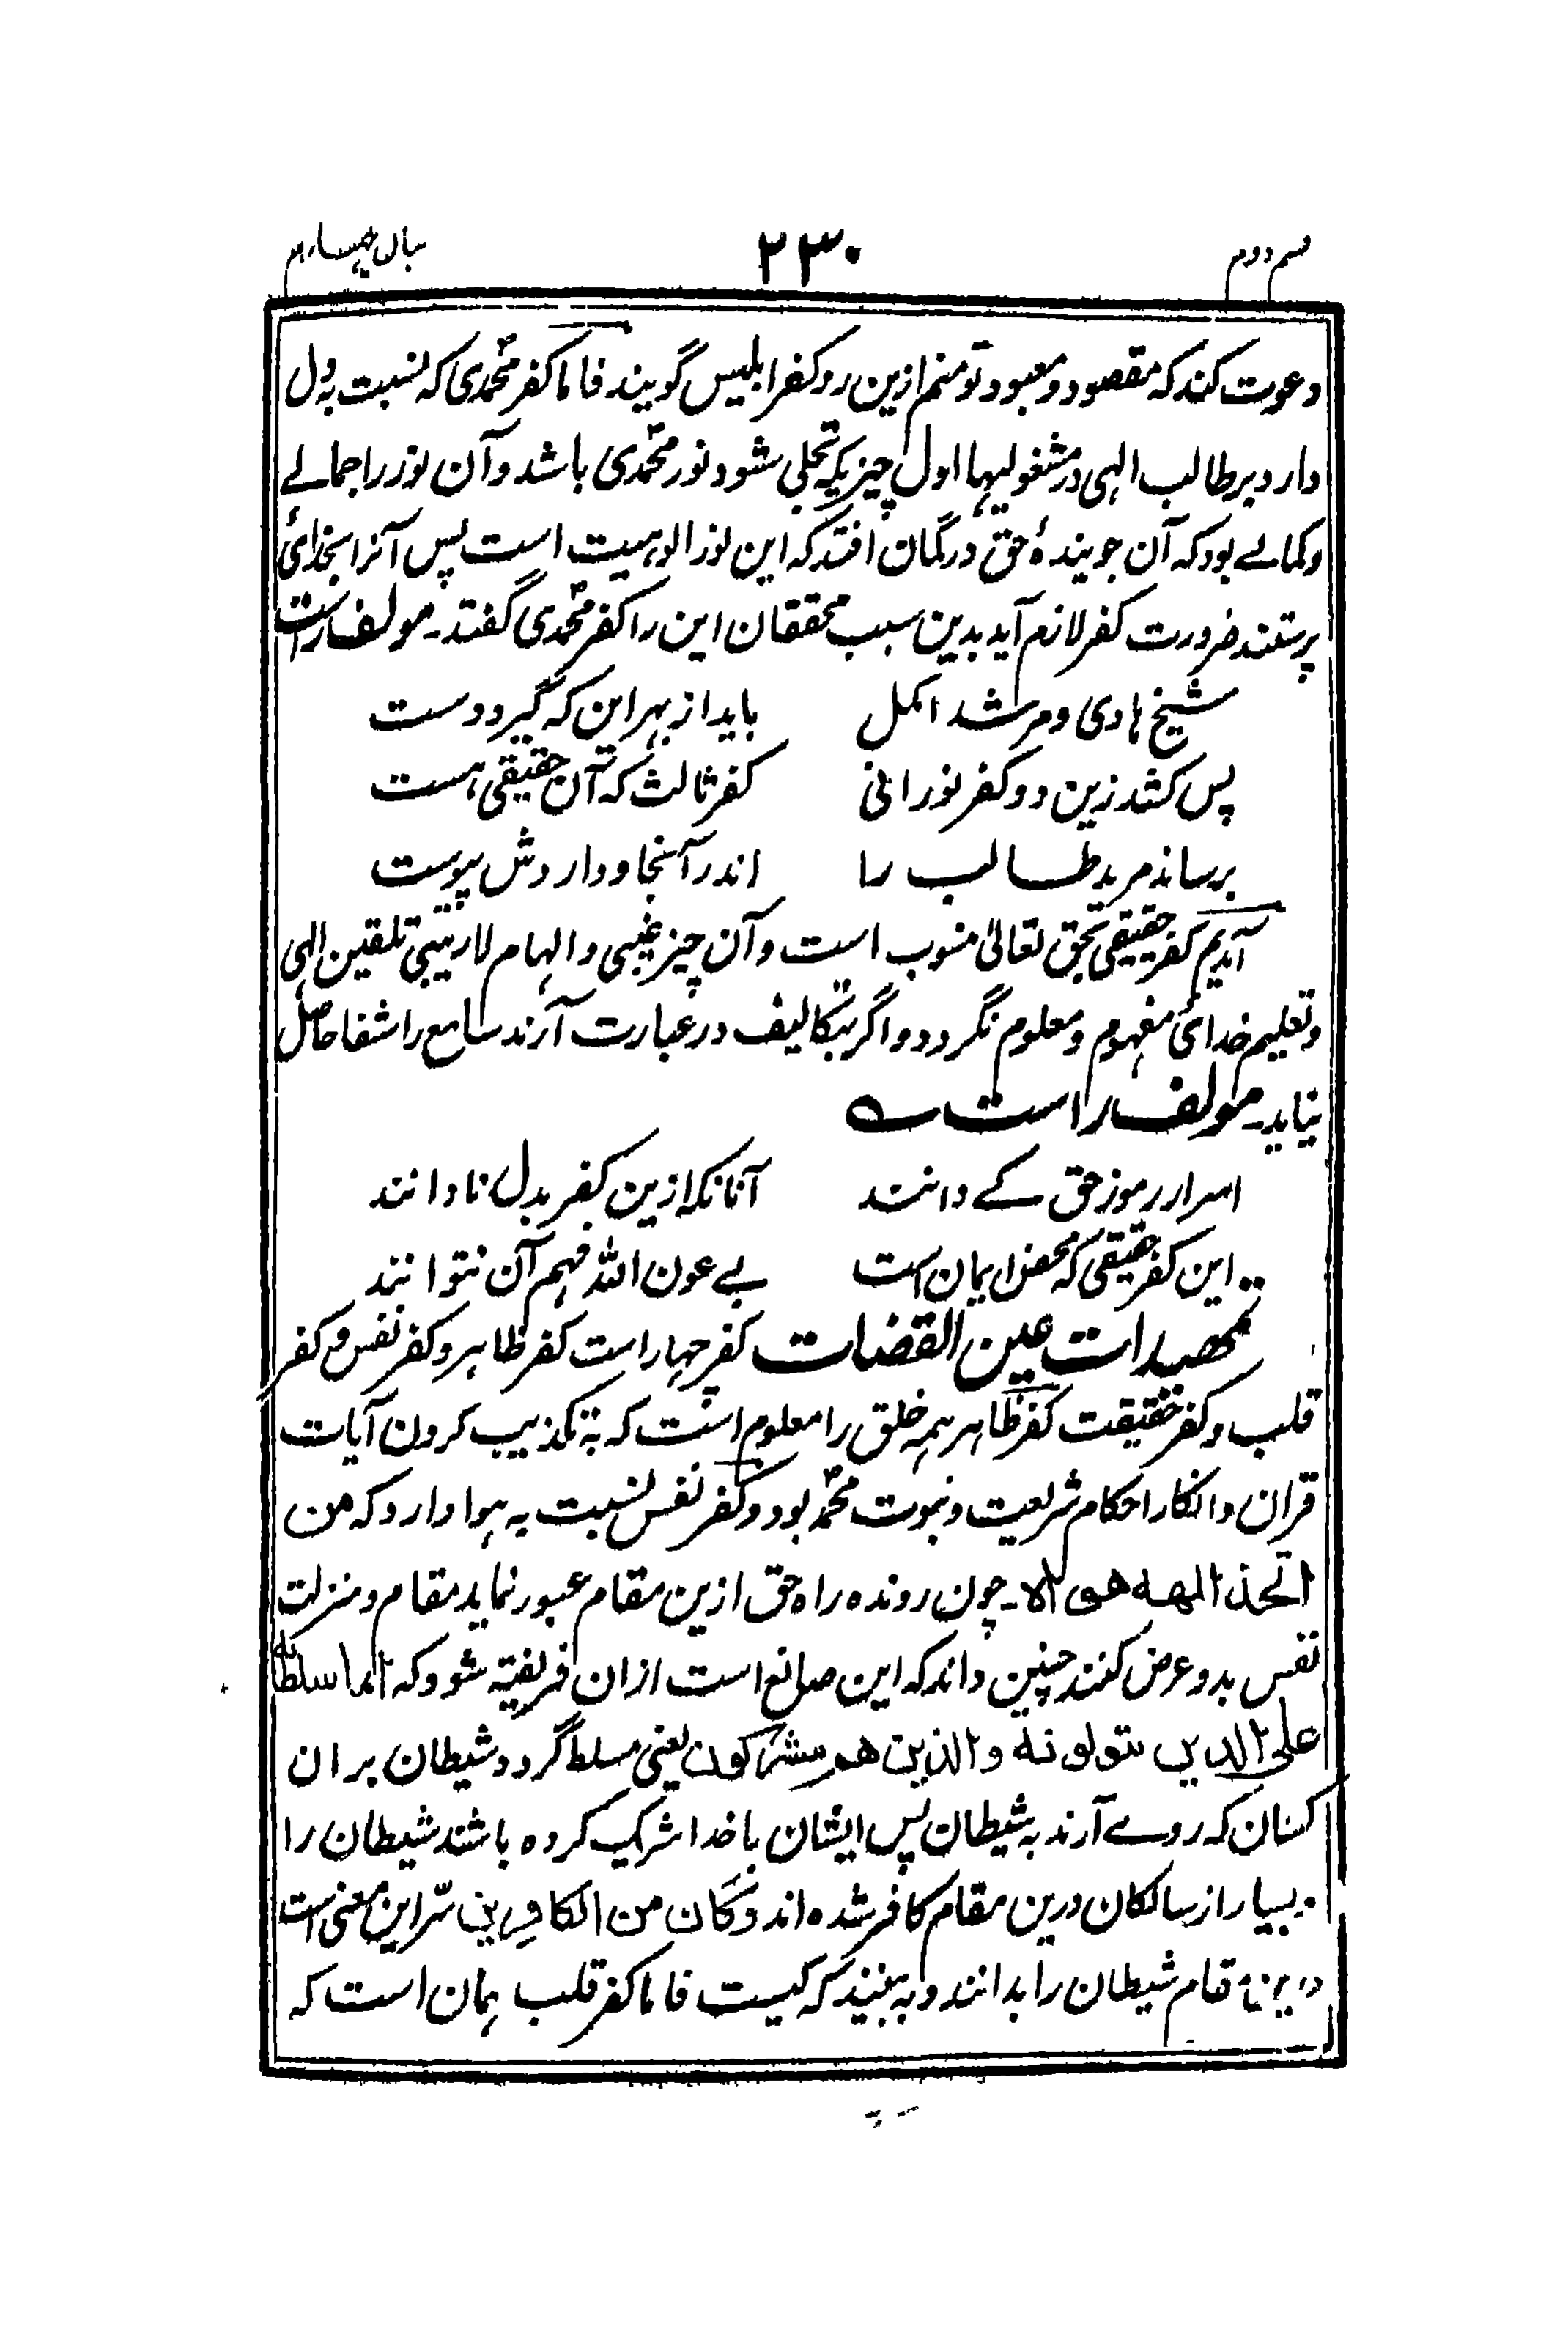 قسم دوم
۲۳۰
بیان چہارم
دعوت کند که مقصود و معبود تو منم ازین رو کفر ابلیس گویند فاما کفر محمدی که نسبت به دل
دارد بر طالب الہی در مشغولیہا اول چیزیکه تجلی شود نور محمدی باشد و آن نور را جمالے
و کمالے بود که آن جویندۂ حق در گمان افتد که این نور الوہیت است پس آنرا بخدائ
پرستند ضرورت کفر لازم آید بدین سبب محققان این را کفر محمدی گفتند۔ مولف راست
شیخ ہادی و مرشد اکمل
باید از بہر این که گیرد دست
پس کشد زین دو کفر نورانی
کفر ثالث که آن حقیقی ہست
برساند مرید طالب را
اندر آنجا و داردش پیوست
آمدیم کفر حقیقی بحق تعالیٰ منسوب است و آن چیز غیبی و الہام لاریبی تلقین الہی
و تعلیم خدائ مفہوم و معلوم نگردد و اگر بتکالیف در عبارت آرند سامع را شفا حاصل
نیاید۔ مولف راست ؎
اسرار رموز حق کے دانند
آنانکه ازین کفر بدل نادانند
این کفر حقیقی که محض ایمان است
بے عون اللہ فہم آن نتوانند
تمہیدات عین القضات کفر چہار است کفر ظاہر و کفر نفس و کفر
قلب و کفر حقیقت کفر ظاہر ہمہ خلق را معلوم است که به تکذیب کردن آیات
قران و انکار احکام شریعت و نبوت محمد بود و کفر نفس نسبت به ہوا دارد که من
اتخذ الهه هواه۔ چون رونده راه حق ازین مقام عبور نماید مقام و منزلت
نفس بدو عرض کنند چنین داند که این صانع است ازان فریفته شود که انما سلطانه
علی الذین یتولونه والذین هم مشرکون یعنی مسلط گردد شیطان بر ان
کسان که روے آرند به شیطان پس ایشان با خدا شریک کرده باشند شیطان را
بسیار از سالکان درین مقام کافر شده اند و کان من الکافرین سرّ این معنی است
درین مقام شیطان را بدانند و به بینند که کیست فاما کفر قلب ہمان است که